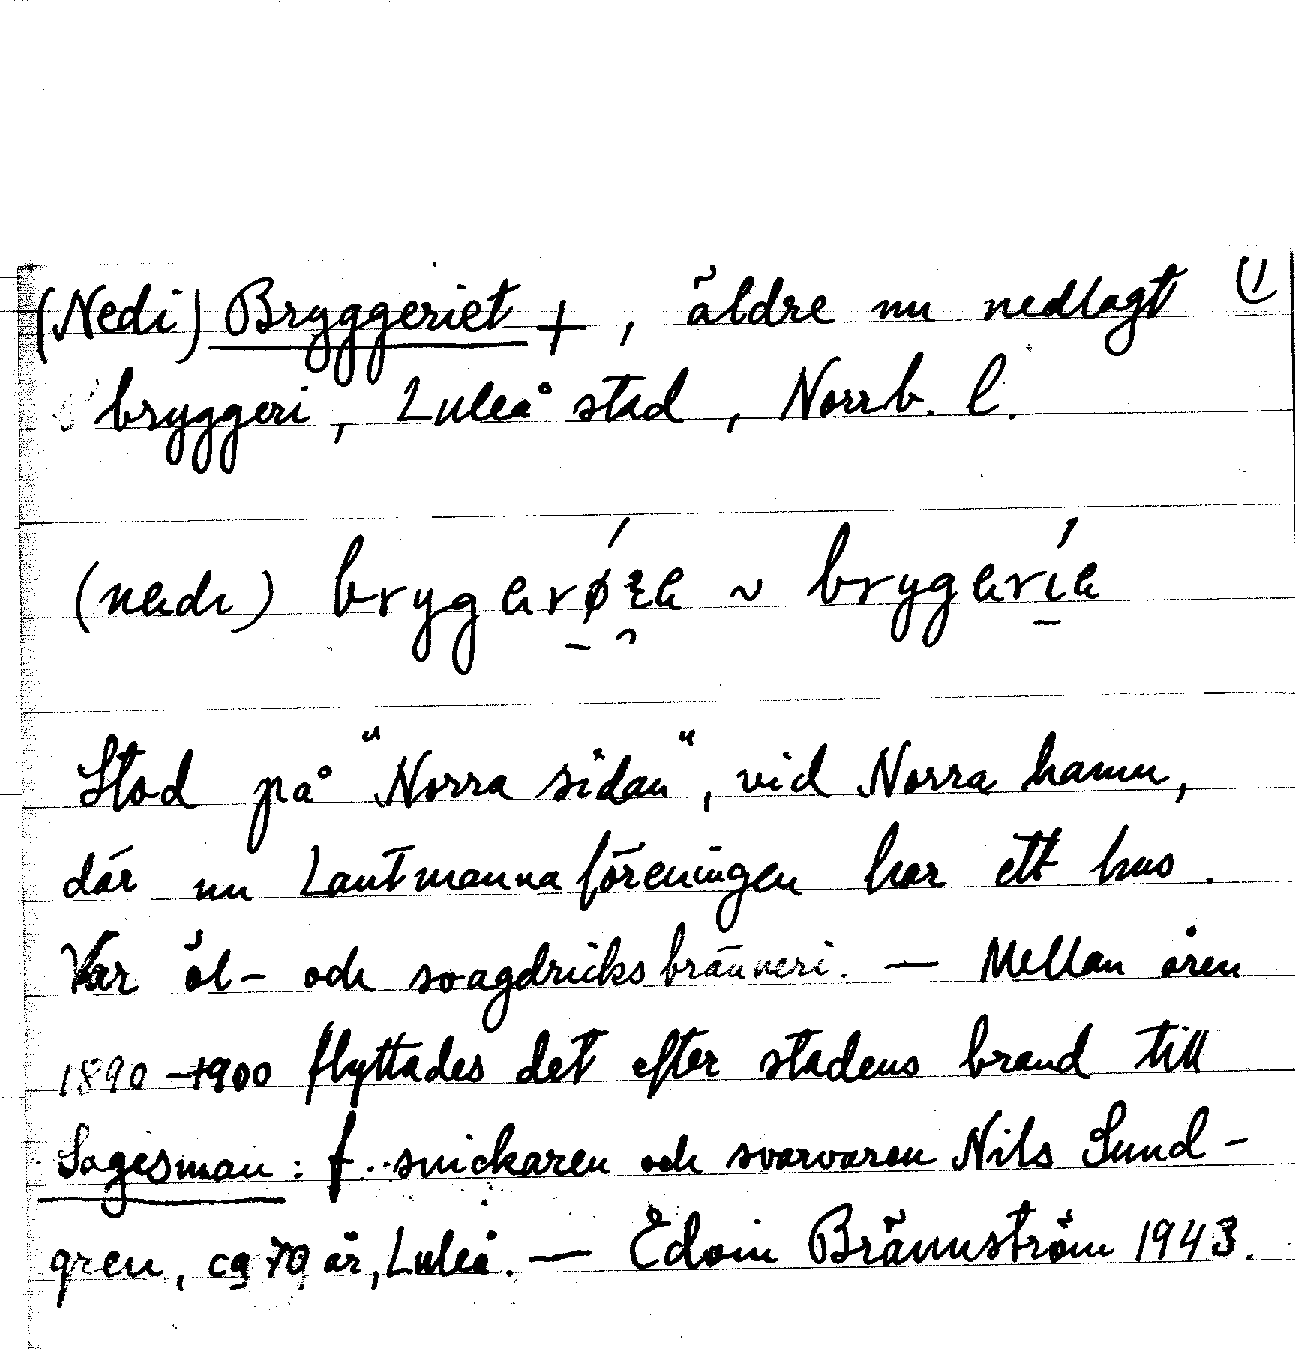 (Nedi) Bryggeriet +, äldre nu nedlagt 1)
bryggeri, Luleå stad, Norrb. l.
(nedı) ~
Stod på "Norra sidan", vid Norra hamn,
där nu Lantmannaföreningen har ett hus.
Var öl- och svagdricksbränneri. — Mellan åren
1890-1900 flyttades det efter stadens brand till
Sagesman: f. snickaren och svarvaren Nils Sund-
gren, ca 70 år, Luleå. — Edvin Brännström 1943.